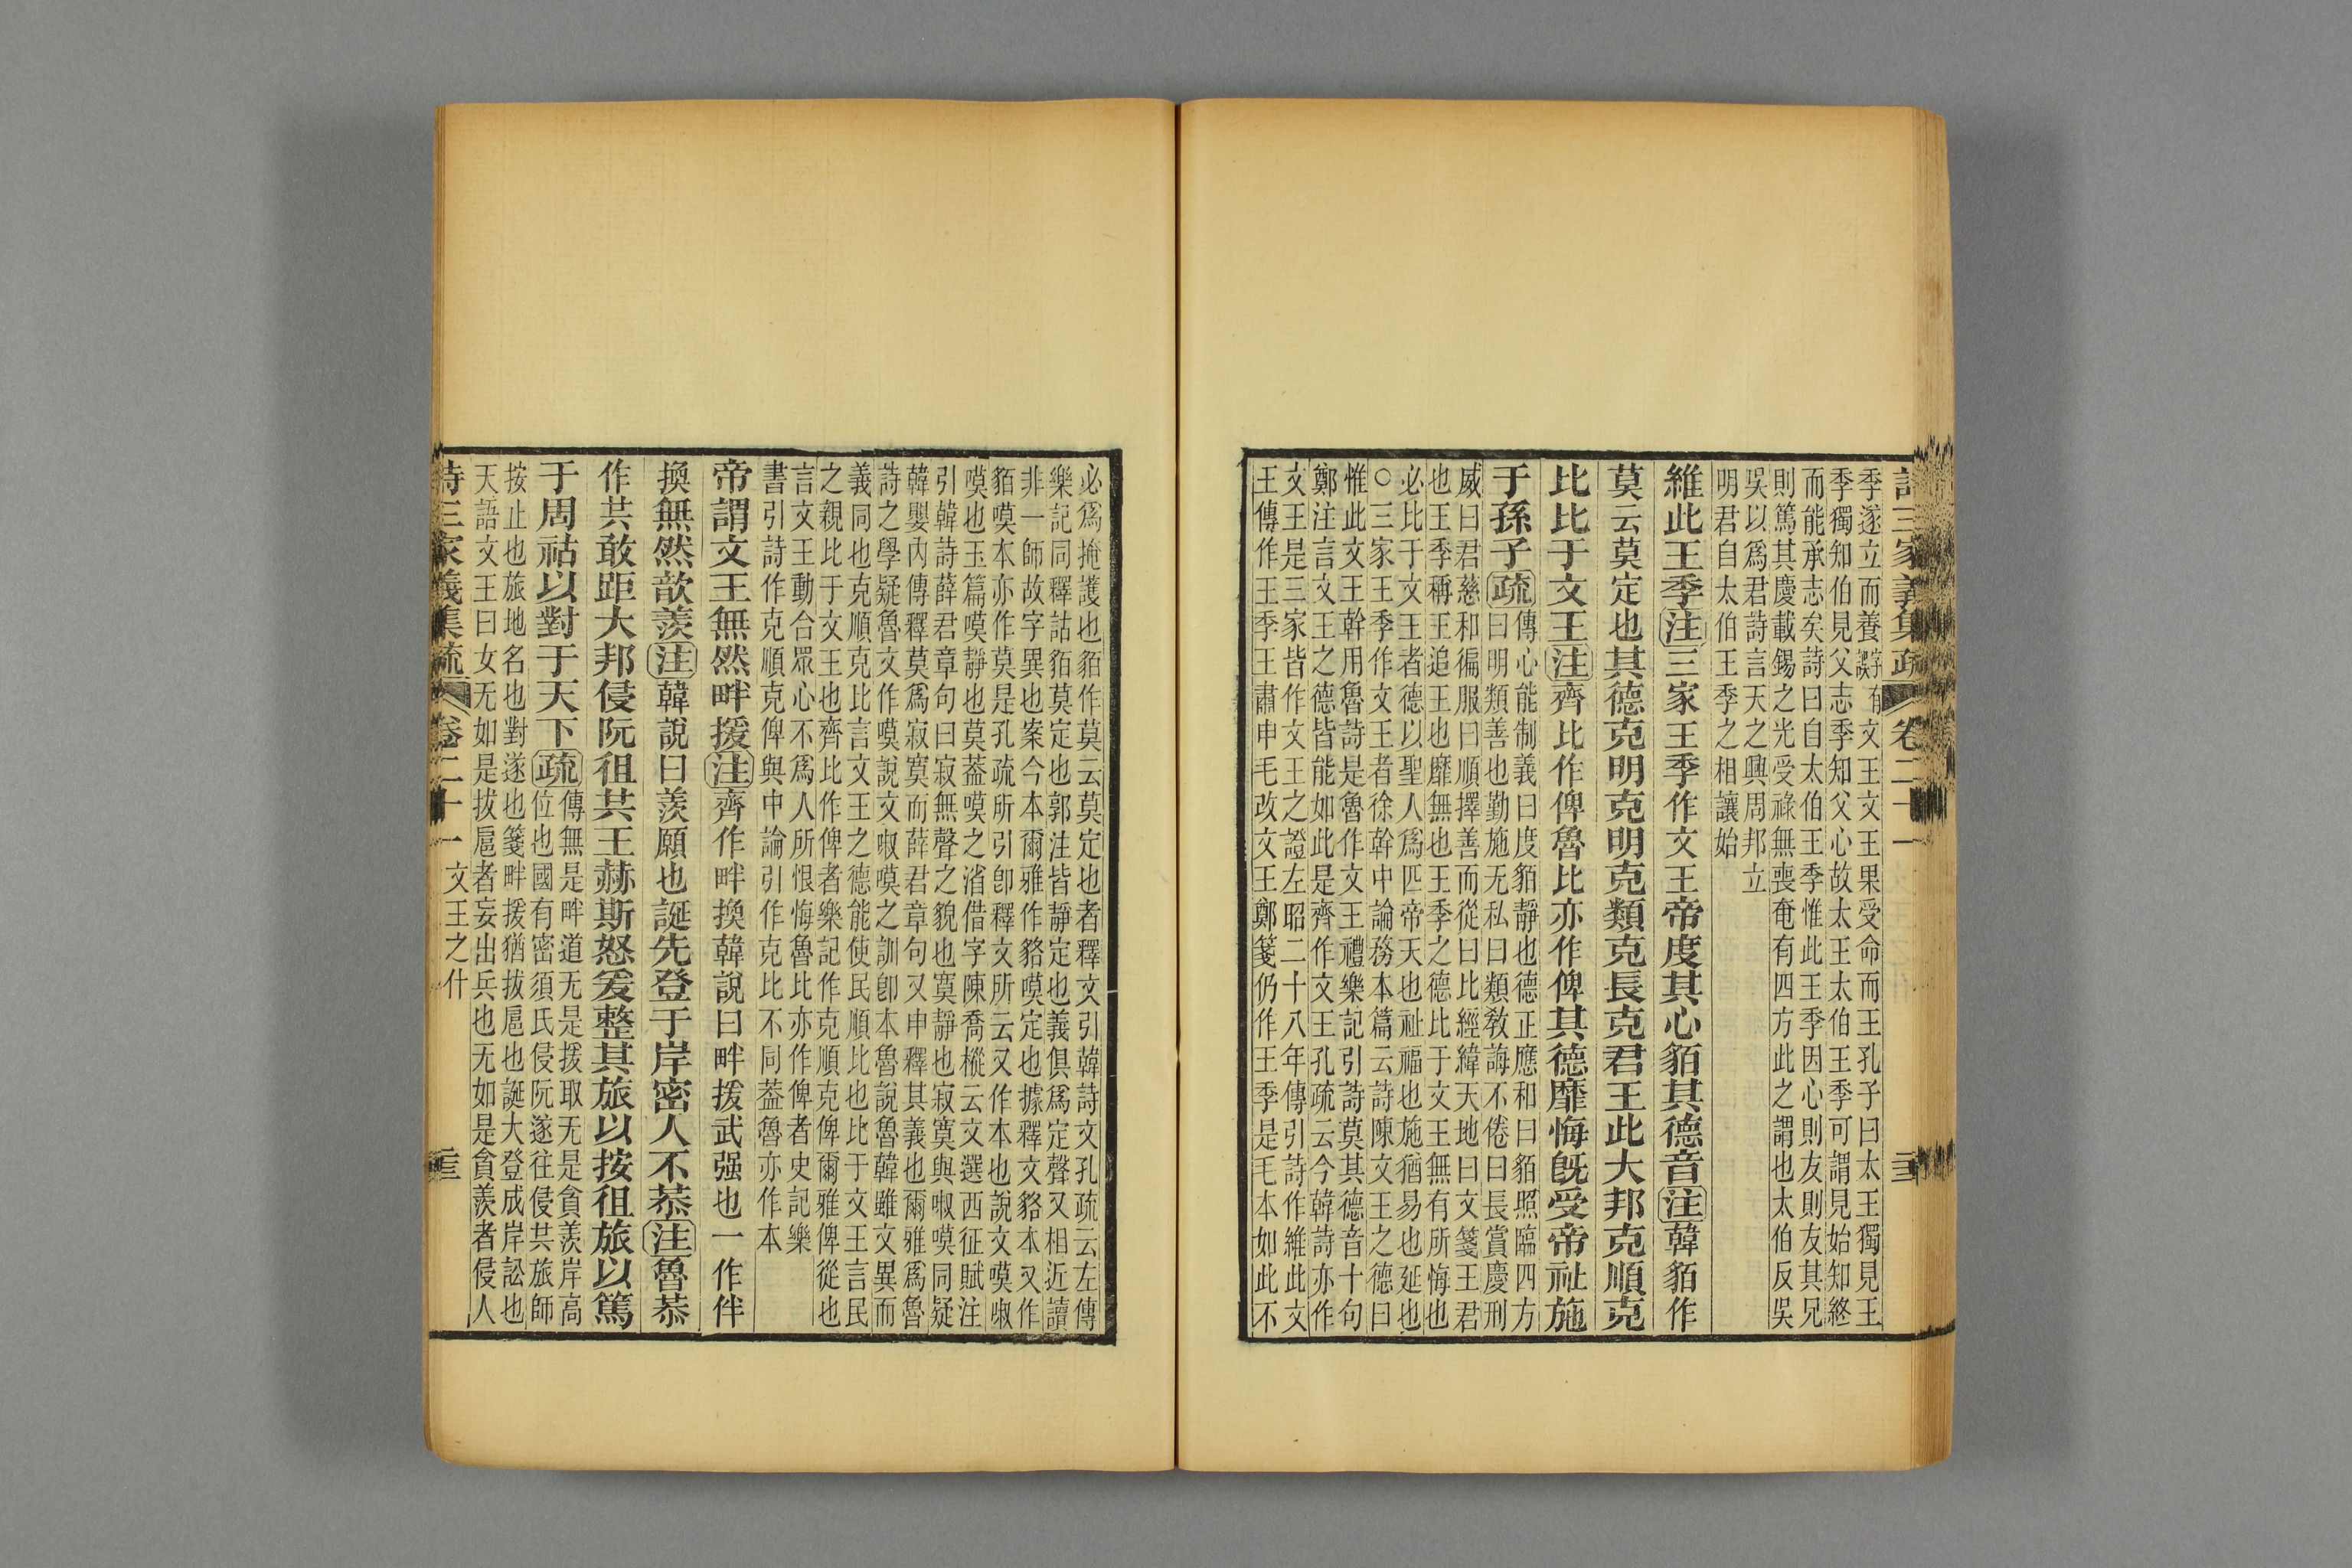 詩三家義集疏 卷二十一 三
季遂立而養字有誤文王文王果受命而王孔子曰太王獨見王
季獨知伯見父志季知父心故太王太伯王季可謂見始知終
而能承志矣詩曰自太伯王季惟此王季因心則友則友其兄
則篤其慶載錫之光受祿無喪奄有四方此之謂也太伯反吳
吳以爲君詩言天之興周邦立
明君自太伯王季之相讓始
維此王季注三家王季作文王帝度其心貊其德音注韓貊作
莫云莫定也其德克明克明克類克長克君王此大邦克順克
比比于文王注齊比作俾魯比亦作俾其德靡悔旣受帝祉施
于孫子疏傳心能制義曰度貊靜也德正應和曰貊照臨四方
曰明類善也勤施无私曰類敎誨不倦曰長賞慶刑
威曰君慈和徧服曰順擇善而從曰比經緯天地曰文箋王君
也王季稱王追王也靡無也王季之德比于文王無有所悔也
必比于文王者德以聖人爲匹帝天也祉福也施猶易也延也
○三家王季作文王者徐幹中論務本篇云詩陳文王之德曰
惟此文王幹用魯詩是魯作文王禮樂記引詩莫其德音十句
鄭注言文王之德皆能如此是齊作文王孔疏云今韓詩亦作
文王是三家皆作文王之證左昭二十八年傳引詩作維此文
王傳作王季王肅申毛改文王鄭箋仍作王季是毛本如此不
必爲掩護也貊作莫云莫定也者釋文引韓詩文孔疏云左傳
樂記同釋詁貊莫定也郭注皆靜定也義俱爲定聲又相近讀
非一師故字異也案今本爾雅作貉嗼定也據釋文貉本又作
貊嗼本亦作莫是孔疏所引卽釋文所云又作本也說文嗼㖩
嗼也玉篇嗼靜也莫葢嗼之消借字陳喬樅云文選西征賦注
引韓詩薛君章句曰寂無聲之貌也寞靜也寂寞與㖩嗼同疑
韓嬰內傳釋莫爲寂寞而薛君章句又申釋其義也爾雅爲魯
詩之學疑魯文作嗼說文㖩嗼之訓卽本魯說魯韓雖文異而
義同也克順克比言文王之德能使民順比也比于文王言民
之親比于文王也齊比作俾者樂記作克順克俾爾雅俾從也
言文王動合眾心不爲人所恨悔魯比亦作俾者史記樂
書引詩作克順克俾與中論引作克比不同葢魯亦作本
帝謂文王無然畔援注齊作畔換韓說曰畔援武强也一作伴
換無然歆羨注韓說曰羨願也誕先登于岸密人不恭注魯恭
作共敢距大邦侵阮徂共王赫斯怒爰整其旅以按徂旅以篤
于周祜以對于天下疏傳無是畔道无是援取无是貪羨岸高
位也國有密須氏侵阮遂往侵共旅師
按止也旅地名也對遂也箋畔援猶拔扈也誕大登成岸訟也
天語文王曰女无如是拔扈者妄出兵也无如是貪羨者侵人
詩三家義集疏 卷二十一 文王之什 三